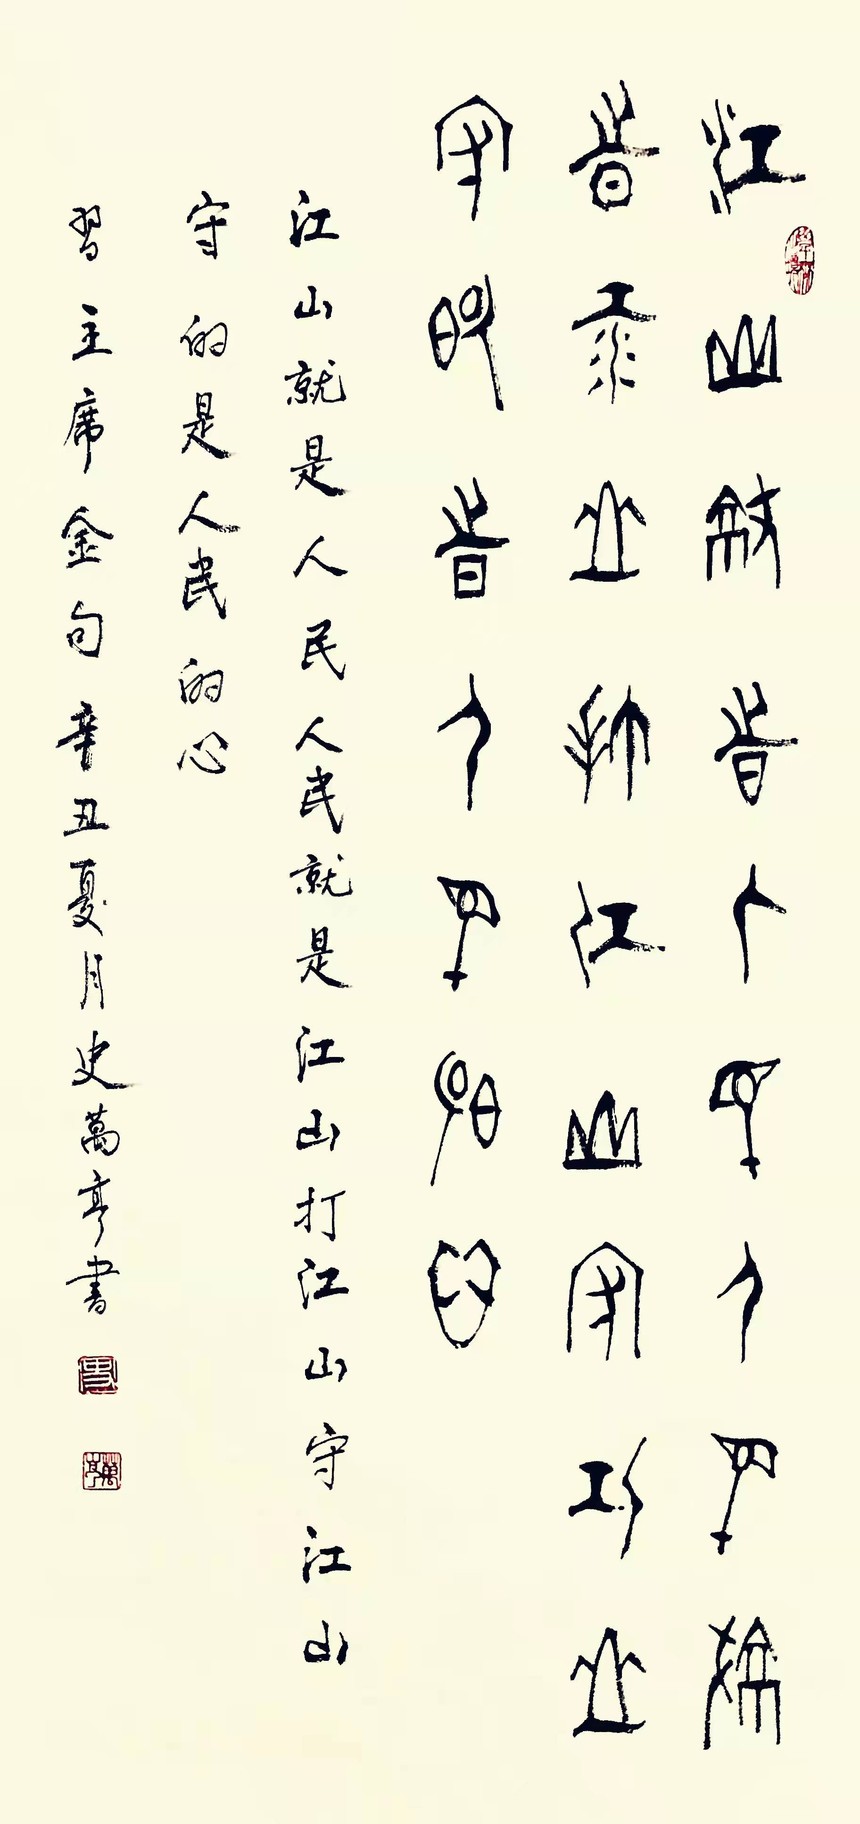 江山就是人民人民就
是江山打江山守江山
守的是人民的心
江山就是人民人民就是江山打江山守江山
守的是人民的心
習主席金句辛丑夏月史萬亭書